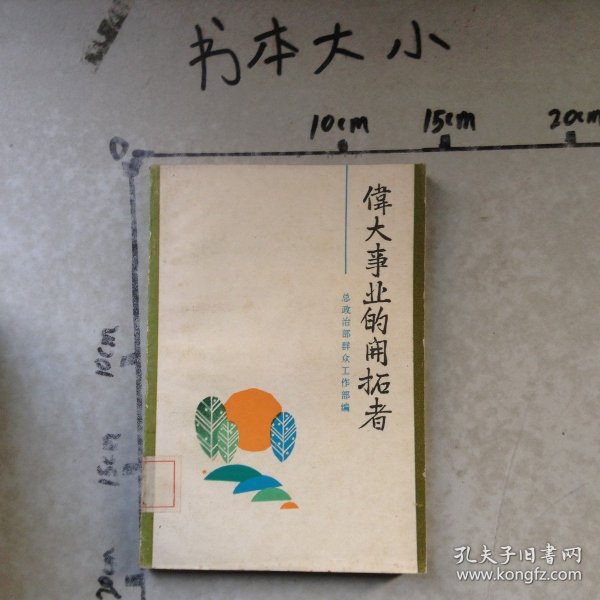 书本大小
10cm
15cm
20cm
0
10cm
15cm
20cm
偉大事业的開拓者
总政治部群众工作部编
孔夫子旧书网
www.kongfz.com